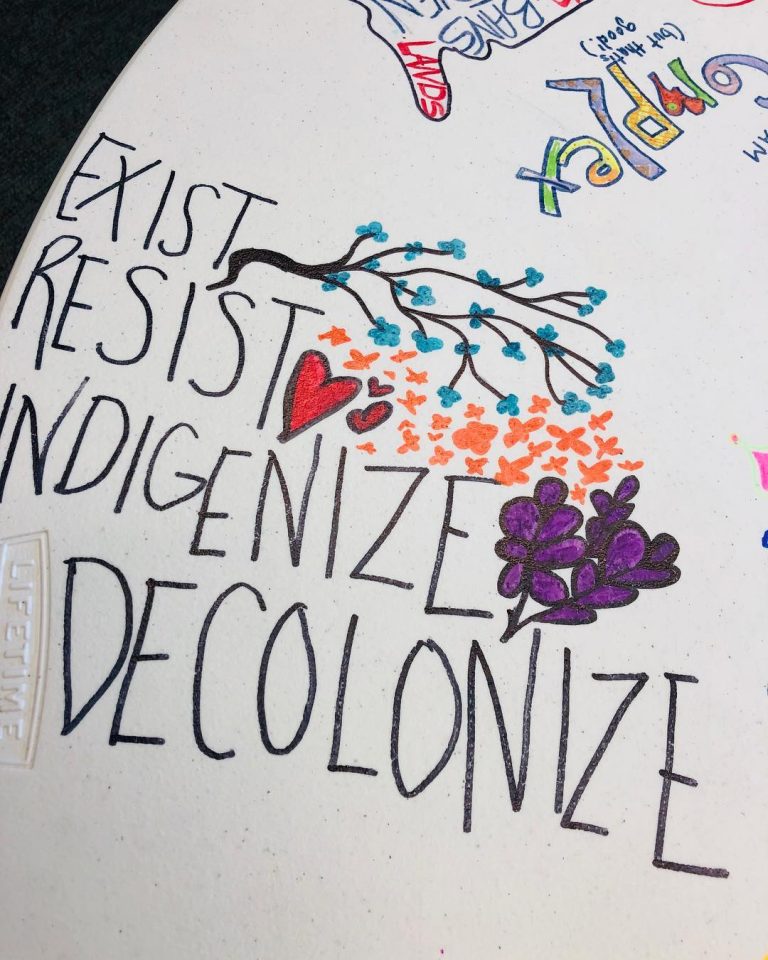 BANS
LANDS
complex
(but that's
good!)
AM
EXIST
RESIST
INDIGENIZE
DECOLONIZE
LIFETIME